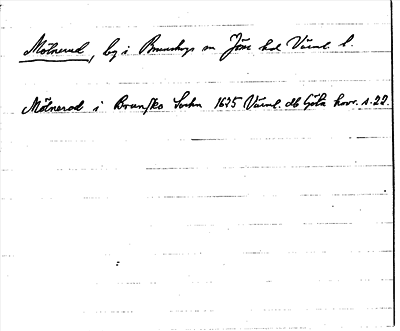 Mölnerud, by i Brunskogs sn Jösse hd Värml. l.
Mölnerod i Brunsko Sochn 1635 Värml. db Göta hovr. s. 22.